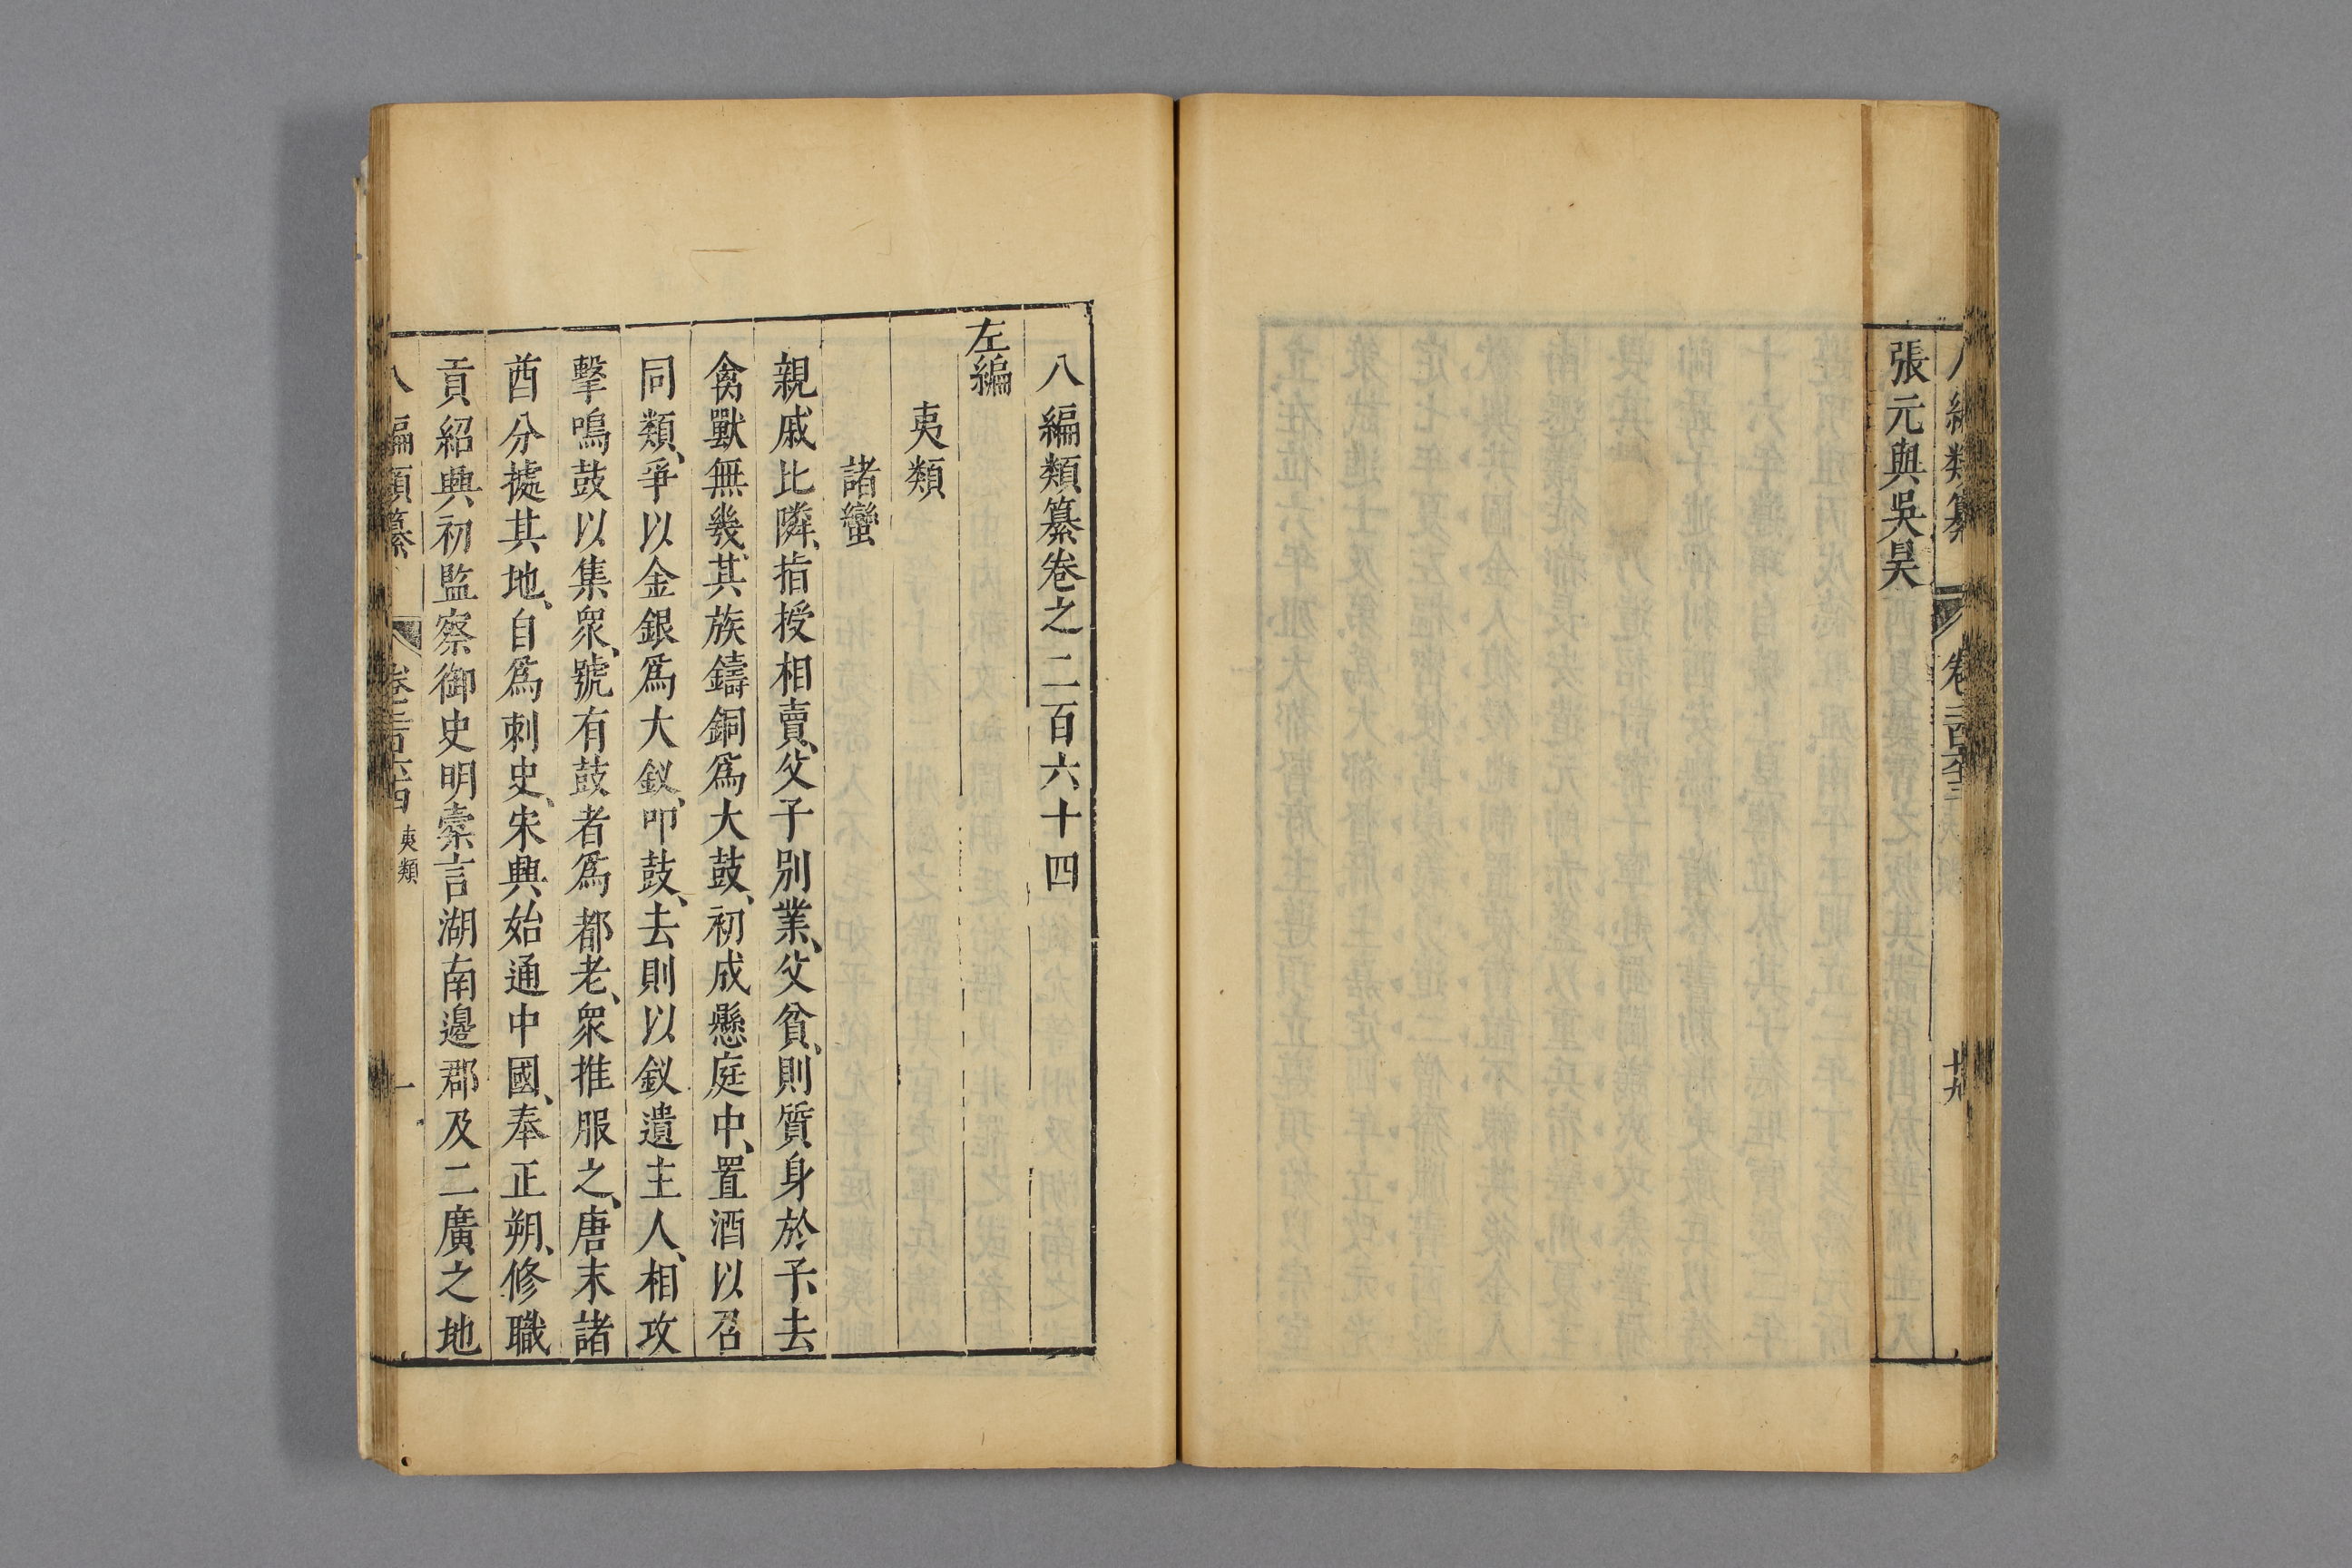 八編類纂 卷二百六十三 十九
張元與吳昊
八編類纂卷之二百六十四
左編
夷類
諸蠻
親戚比隣、指授相賣、父子別業、父貧、則質身於子、去
禽獸無幾、其族鑄銅爲大鼓、初成懸庭中、置酒以召
同類、爭以金銀爲大釵、叩鼓、去則以釵遺主人、相攻
擊鳴鼓以集衆、號有鼓者爲都老、衆推服之、唐末諸
酋分據其地、自爲刺史、宋興始通中國、奉正朔、修職
貢紹興初監察御史明橐言湖南邊郡及二廣之地
八編類纂 卷二百六十四 夷類 一